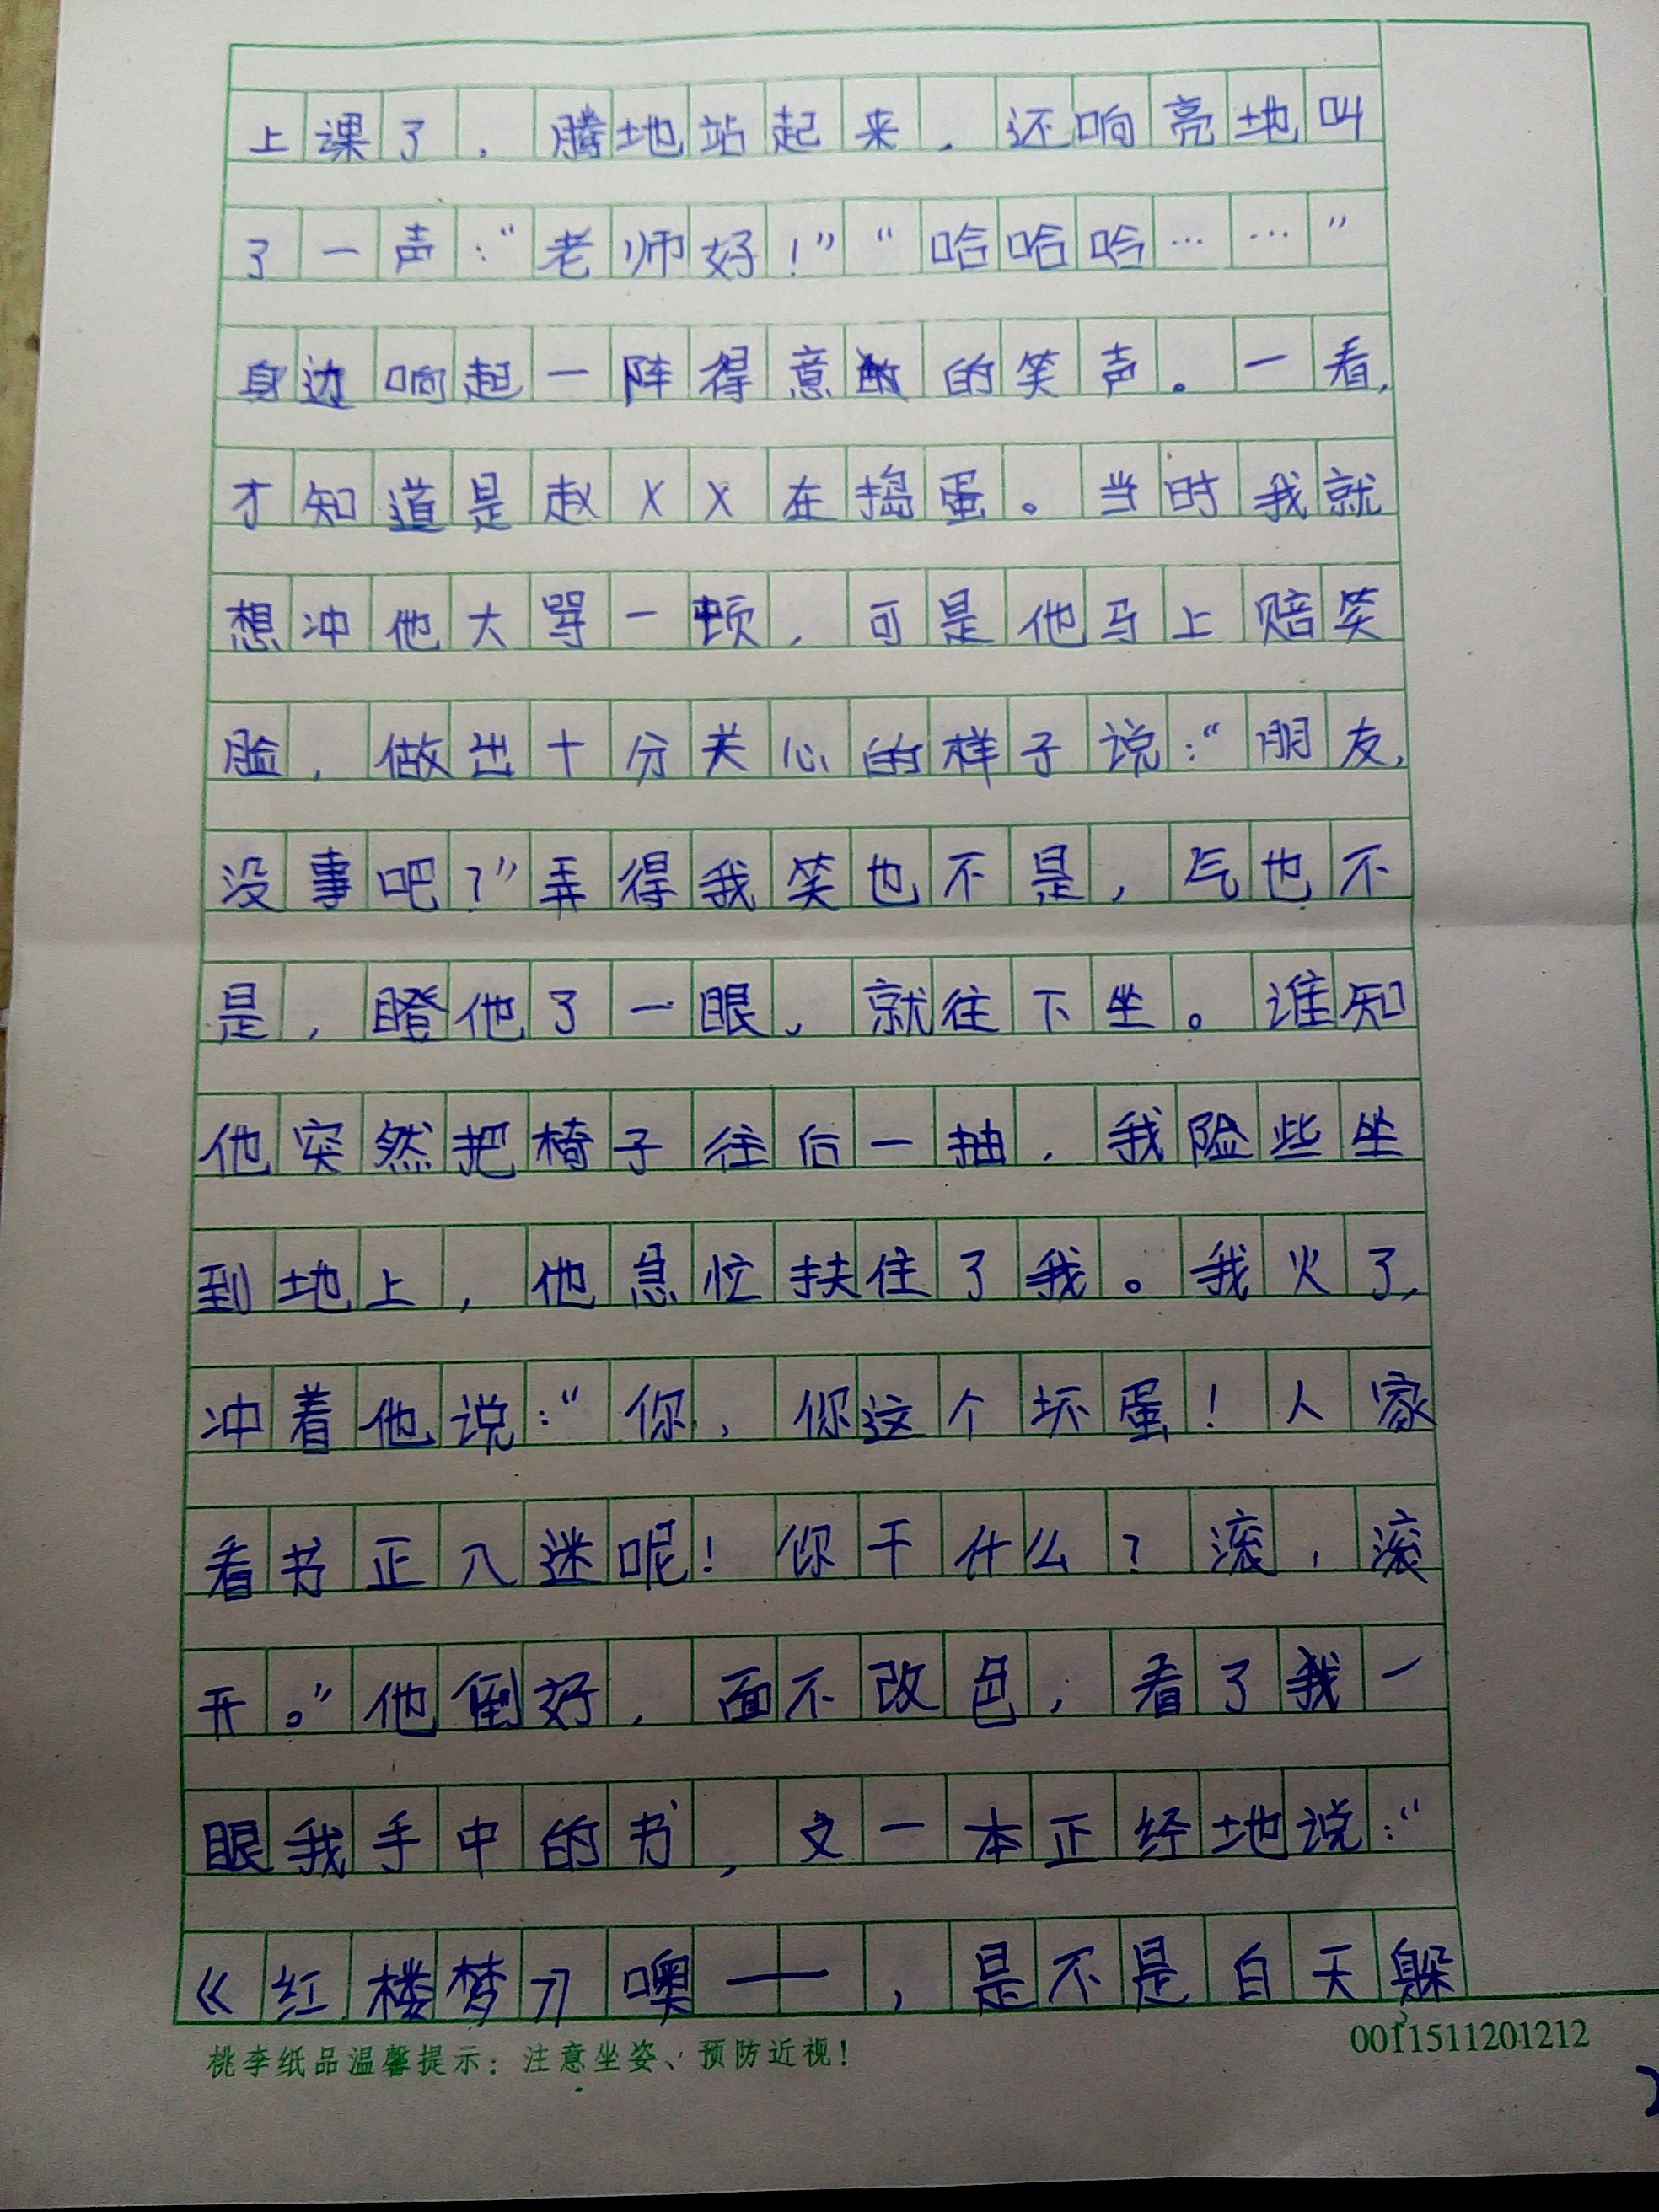 上课了，腾地站起来，还响亮地叫
了一声：“老师好！”“哈哈哈……”
身边响起一阵得意的笑声。一看，
才知道是赵XX在捣蛋。当时我就
想冲他大骂一顿，可是他马上赔笑
脸，做出十分关心的样子说：“朋友，
没事吧？”弄得我笑也不是，气也不
是，瞪他了一眼，就往下坐。谁知
他突然把椅子往后一抽，我险些坐
到地上，他急忙扶住了我。我火了，
冲着他说：“你，你这个坏蛋！人家
看书正入迷呢！你干什么？滚，滚
开。”他倒好，面不改色，看了我一
眼我手中的书，文一本正经地说：“
《红楼梦》噢——，是不是白天躲
桃李纸品温馨提示：注意坐姿、预防近视！
0011511201212